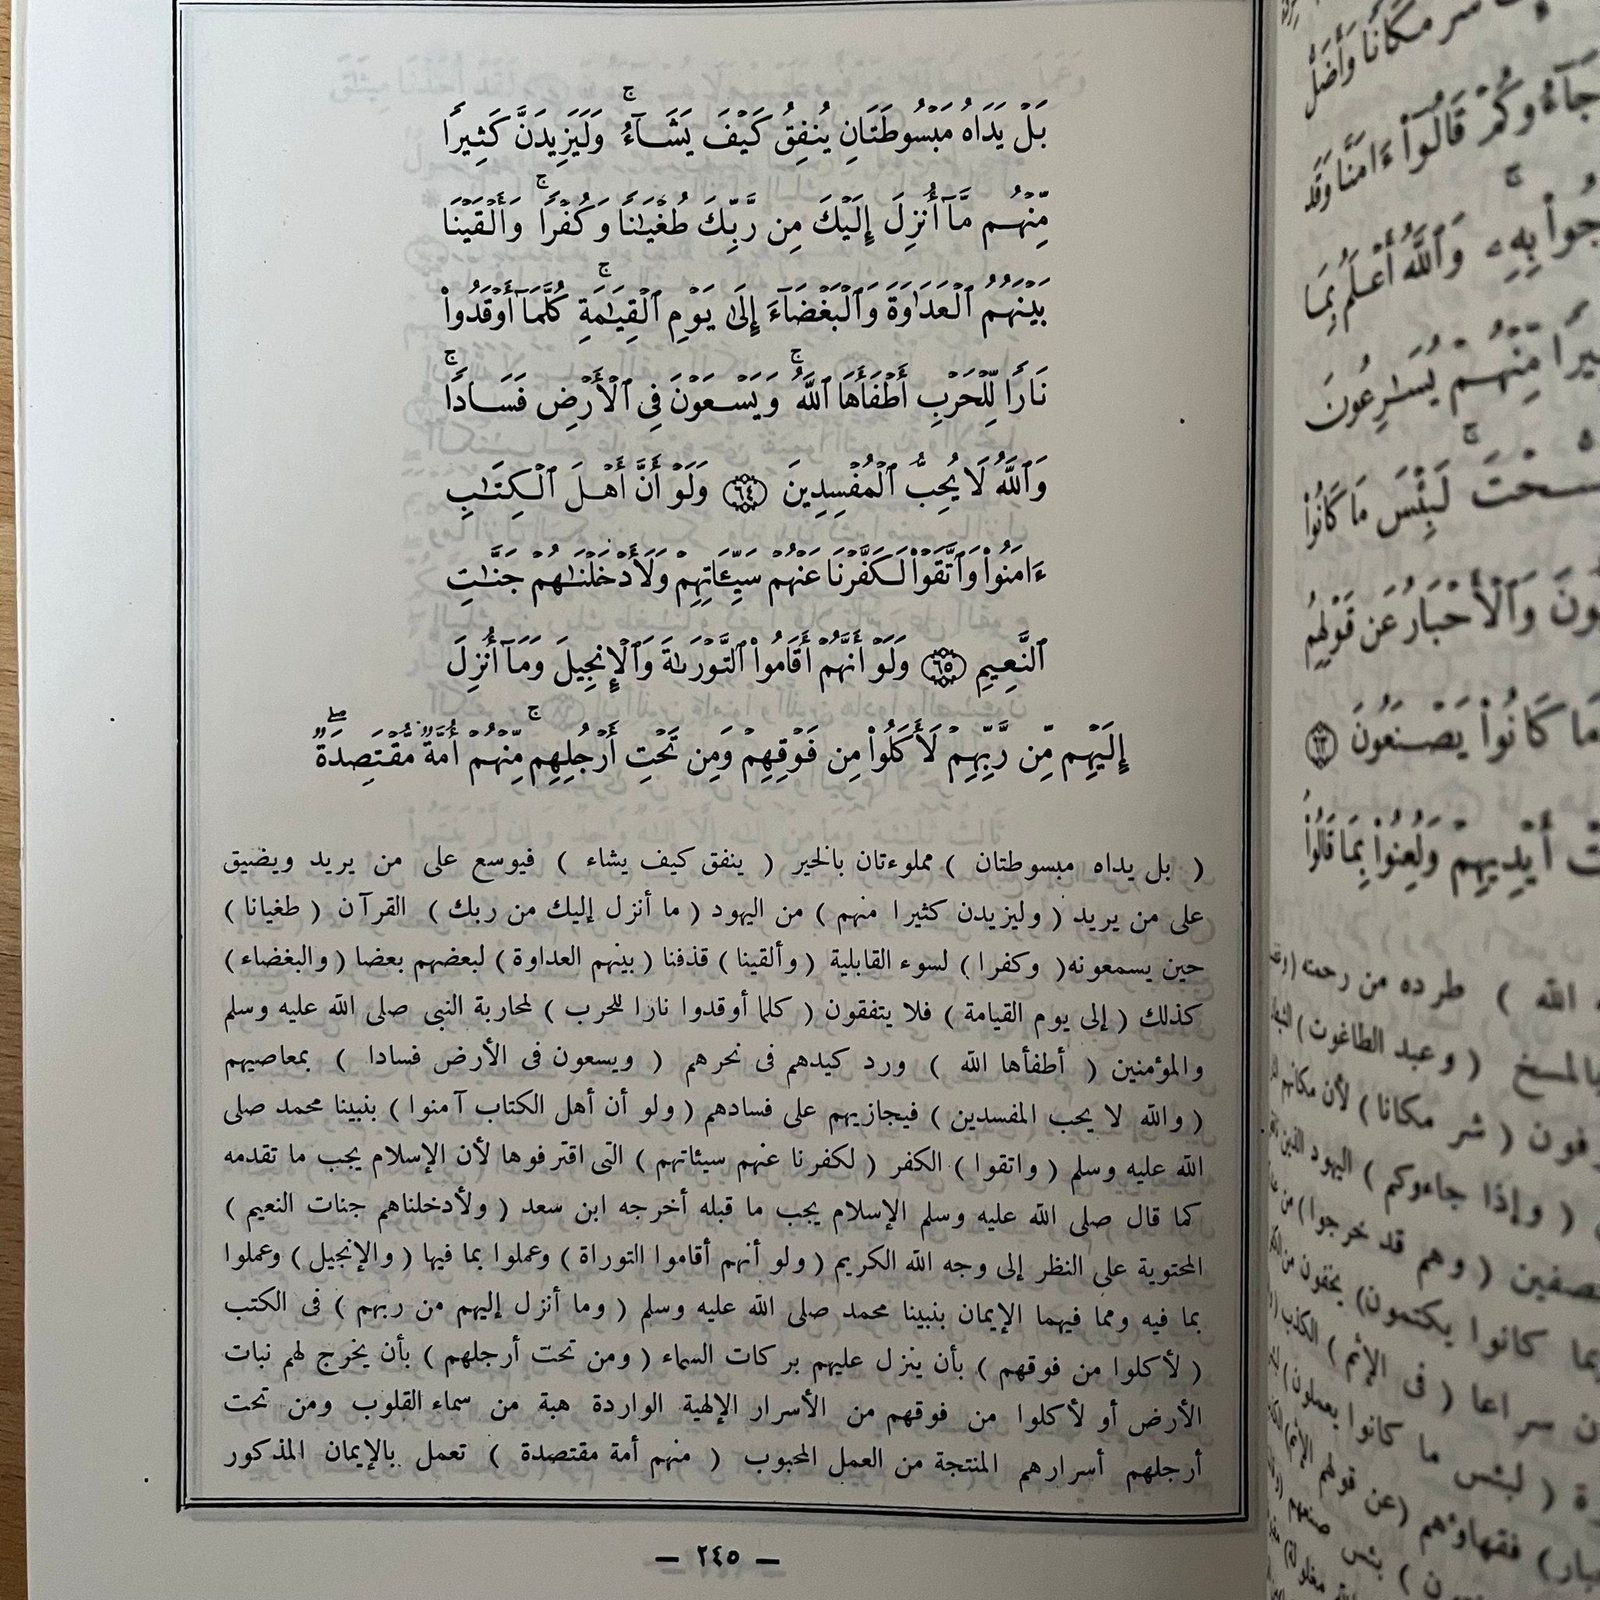 بَلْ يَدَاهُ مَبْسُوطَتَانِ يُنفِقُ كَيْفَ يَشَآءُ ۚ وَلَيَزِيدَنَّ كَثِيرًا
مِّنْهُم مَّآ أُنزِلَ إِلَيْكَ مِن رَّبِّكَ طُغْيَٰنًا وَكُفْرًا ۚ وَأَلْقَيْنَا
بَيْنَهُمُ ٱلْعَدَٰوَةَ وَٱلْبَغْضَآءَ إِلَىٰ يَوْمِ ٱلْقِيَٰمَةِ ۚ كُلَّمَآ أَوْقَدُوا۟
نَارًا لِّلْحَرْبِ أَطْفَأَهَا ٱللَّهُ ۚ وَيَسْعَوْنَ فِى ٱلْأَرْضِ فَسَادًا ۚ
وَٱللَّهُ لَا يُحِبُّ ٱلْمُفْسِدِينَ ٦٤ وَلَوْ أَنَّ أَهْلَ ٱلْكِتَٰبِ
ءَامَنُوا۟ وَٱتَّقَوْا۟ لَكَفَّرْنَا عَنْهُمْ سَيِّـَٔاتِهِمْ وَلَأَدْخَلْنَٰهُمْ جَنَّٰتِ
ٱلنَّعِيمِ ٦٥ وَلَوْ أَنَّهُمْ أَقَامُوا۟ ٱلتَّوْرَىٰةَ وَٱلْإِنجِيلَ وَمَآ أُنزِلَ
إِلَيْهِم مِّن رَّبِّهِمْ لَأَكَلُوا۟ مِن فَوْقِهِمْ وَمِن تَحْتِ أَرْجُلِهِم ۚ مِّنْهُمْ أُمَّةٌ مُّقْتَصِدَةٌ ۖ
( بل يداه مبسوطتان ) مملوءتان بالخير ( ينفق كيف يشاء ) فيوسع على من يريد ويضيق
على من يريد ( وليزيدن كثيرا منهم ) من اليهود ( ما أنزل إليك من ربك ) القرآن ( طغيانا )
حين يسمعونه ( وكفرا ) لسوء القابلية ( وألقينا ) قذفنا ( بينهم العداوة ) لبعضهم بعضا ( والبغضاء )
كذلك ( إلى يوم القيامة ) فلا يتفقون ( كلما أوقدوا نارا للحرب ) لمحاربة النبى صلى الله عليه وسلم
والمؤمنين ( أطفأها الله ) ورد كيدهم فى نحرهم ( ويسعون فى الأرض فسادا ) بمعاصيهم
( والله لا يحب المفسدين ) فيجازيهم على فسادهم ( ولو أن أهل الكتاب آمنوا ) بنبينا محمد صلى
الله عليه وسلم ( واتقوا ) الكفر ( لكفرنا عنهم سيئاتهم ) التى اقترفوها لأن الإسلام يجب ما تقدمه
كما قال صلى الله عليه وسلم الإسلام يجب ما قبله أخرجه ابن سعد ( ولأدخلناهم جنات النعيم )
المحتوية على النظر إلى وجه الله الكريم ( ولو أنهم أقاموا التوراة ) وعملوا بما فيها ( والإنجيل ) وعملوا
بما فيه ومما فيهما الإيمان بنبينا محمد صلى الله عليه وسلم ( وما أنزل إليهم من ربهم ) فى الكتب
( لأكلوا من فوقهم ) بأن ينزل عليهم بركات السماء ( ومن تحت أرجلهم ) بأن يخرج لهم نبات
الأرض أو لأكلوا من فوقهم من الأسرار الإلهية الواردة هبة من سماء القلوب ومن تحت
أرجلهم أسرارهم المنتجة من العمل المحبوب ( منهم أمة مقتصدة ) تعمل بالإيمان المذكور
— ٢٤٥ —
شر مكانا وأضل
جآءوكم قالوا ءامنا وقد
به والله أعلم بما
منهم يسرعون
لبئس ما كانوا
والأحبار عن قولهم
ما كانوا يصنعون ٦٣
أيديهم ولعنوا بما قالوا
الله ) طرده من رحمته
( وعبد الطاغوت )
( شر مكانا ) لأن مكانهم
( وإذا جاءوكم ) اليهود
( وهم قد خرجوا ) من
كانوا يكتمون ) يخفون من
سراعا ( فى الإثم ) الكذب
( لبئس ما كانوا يعملون )
فقهاؤهم ( عن قولهم الإثم )
بئس صنعهم